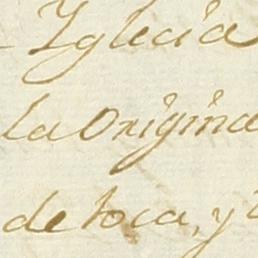 Yglecia
la origina
de toca, y